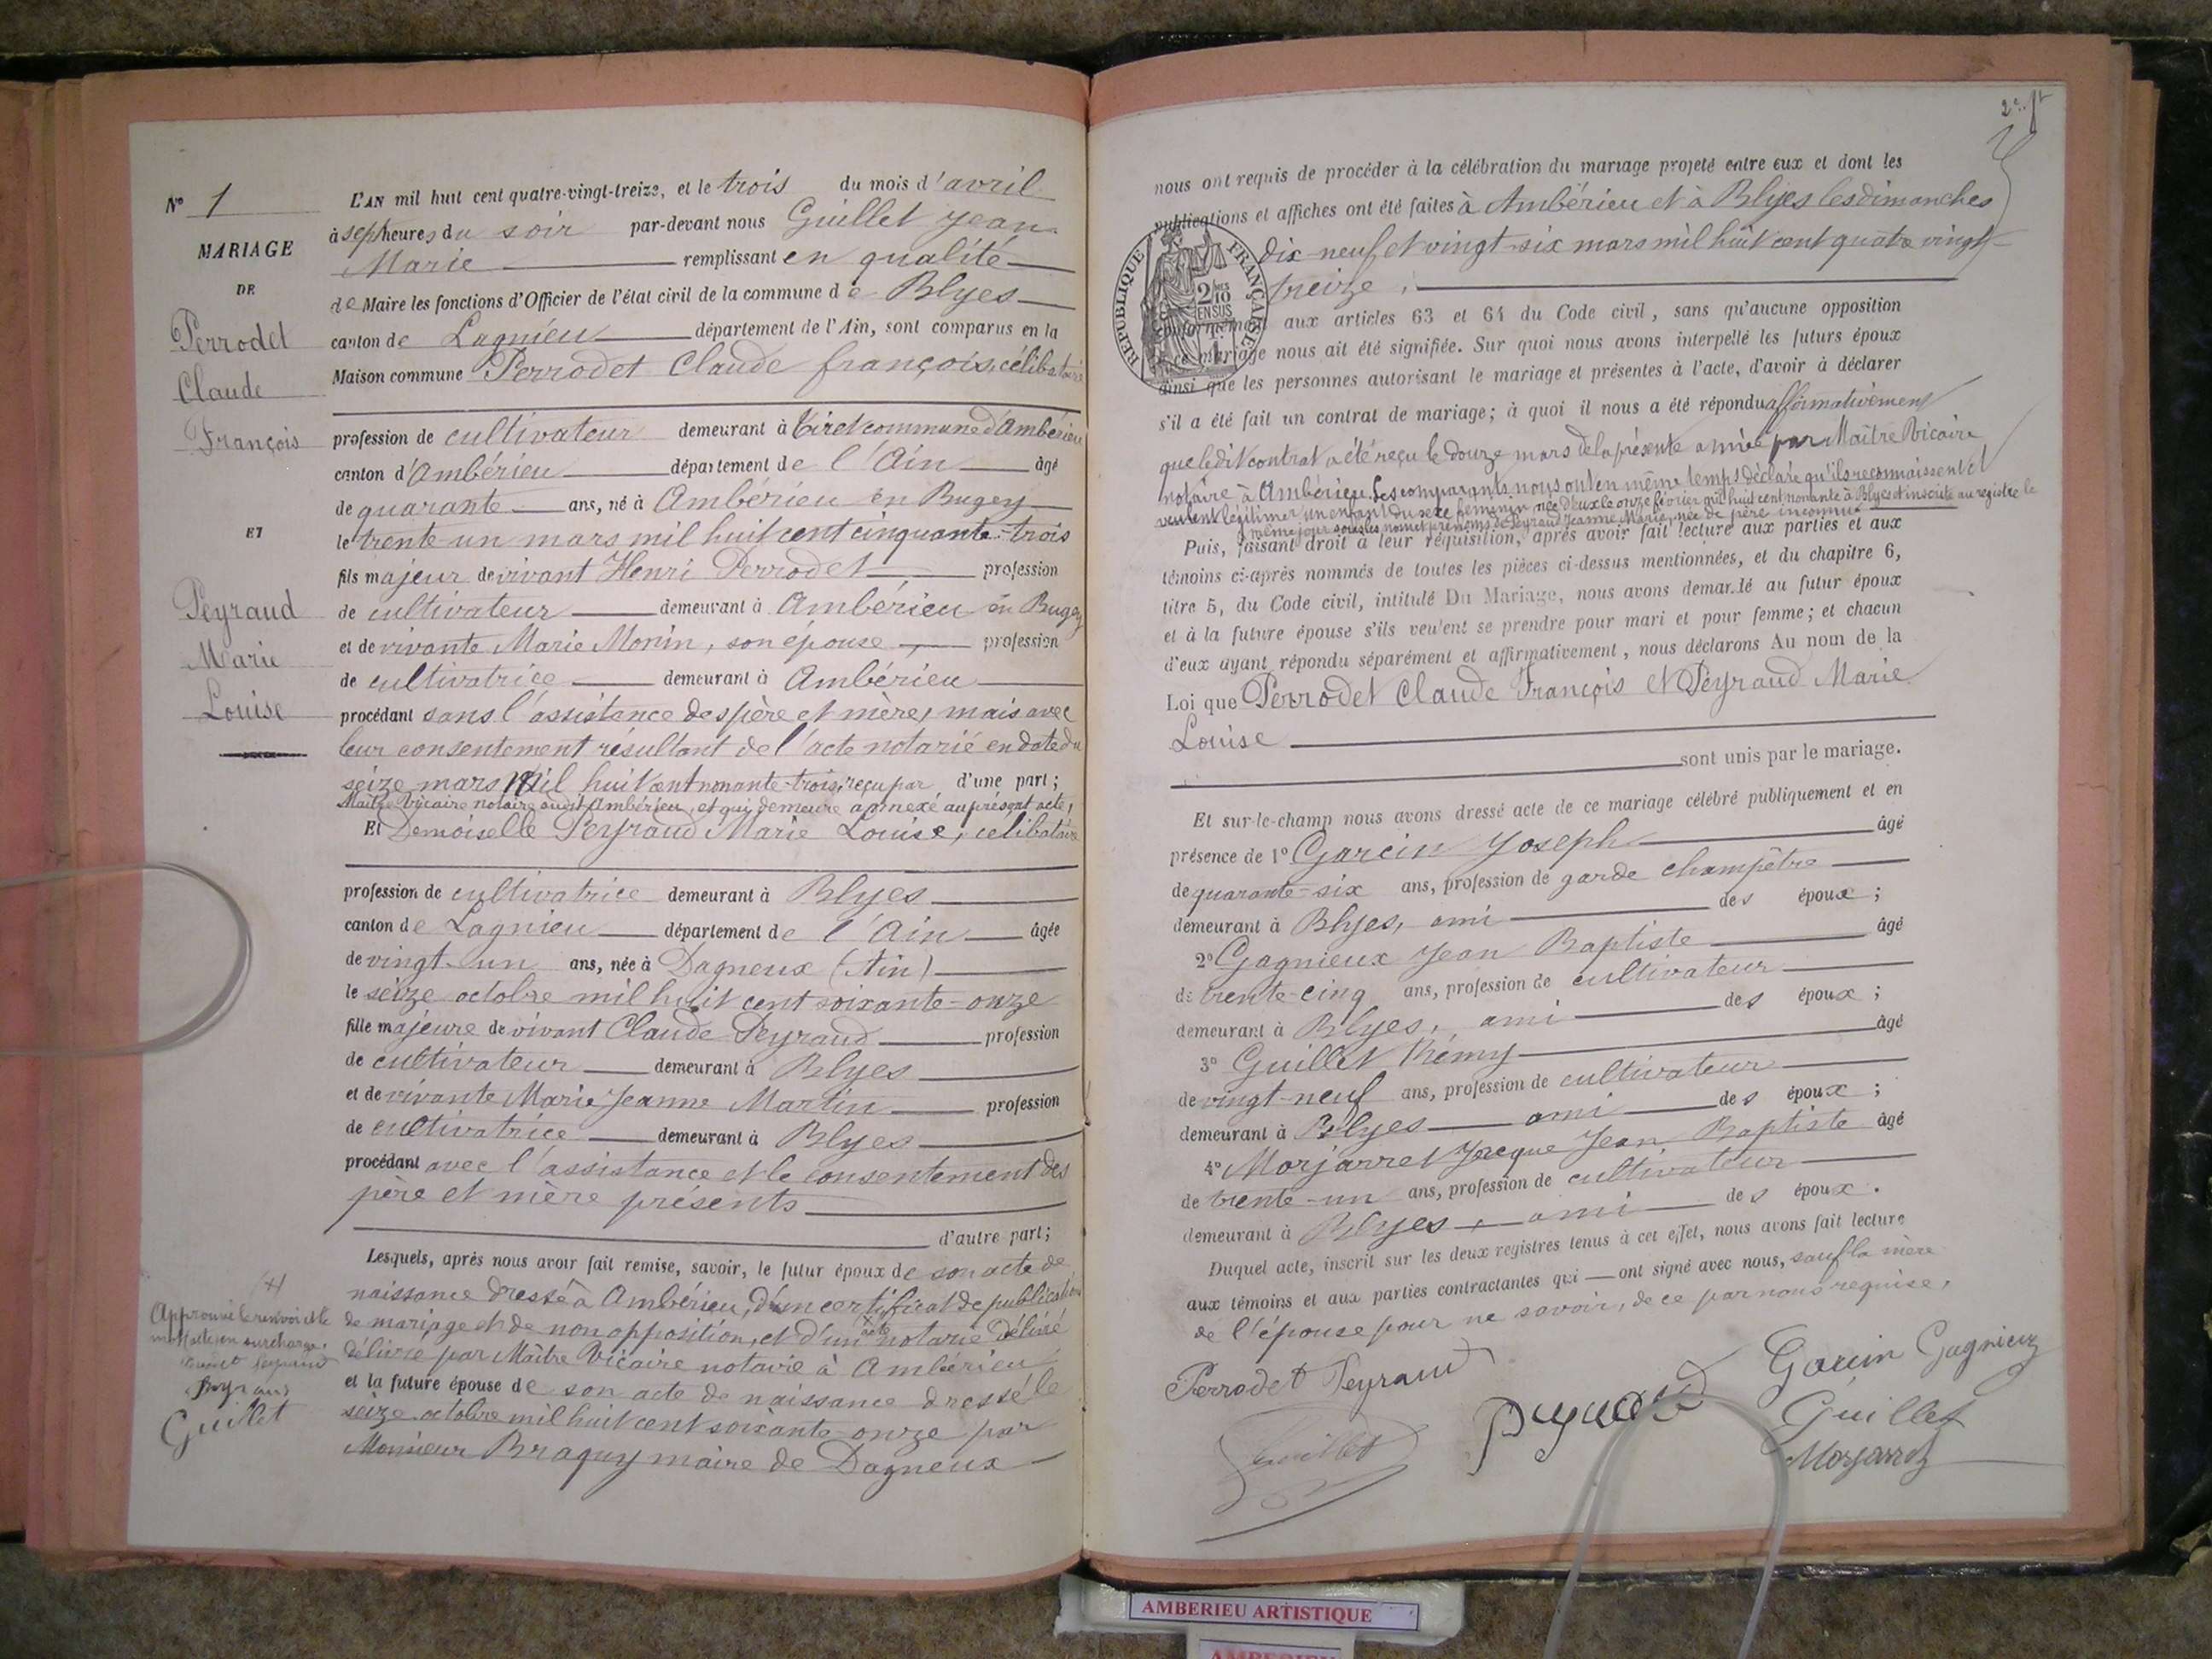 N° 1
MARIAGE
DE
Perrodet
Claude
François
ET
Peyraud
Marie
Louise
L'AN mil huit cent quatre-vingt-treize, et le trois du mois d'avril
à sept heures du soir par-devant nous Guillet Jean
Marie remplissant en qualité
de Maire les fonctions d'Officier de l'état civil de la commune de Blyes
canton de Lagnieu département de l'Ain, sont comparus en la
Maison commune Perrodet Claude françois, célibataire
profession de cultivateur demeurant à Tiret commune d'Ambérieu
canton d'Ambérieu département de l'Ain âgé
de quarante ans, né à Ambérieu en Bugey
le trente-un mars mil huit cent cinquante-trois
fils majeur de vivant Henri Perrodet profession
de cultivateur demeurant à Ambérieu en Bugey
et de vivante Marie Monin, son épouse, profession
de cultivatrice demeurant à Ambérieu
procédant sans l'assistance des père et mère, mais avec
leur consentement résultant de l'acte notarié en date du
seize mars mil huit cent nonante-trois, reçu par d'une part;
Maître Vicaire notaire audit Ambérieu, et qui demeure annexé au présent acte,
Et Demoiselle Peyraud Marie Louise, célibataire
profession de cultivatrice demeurant à Blyes
canton de Lagnieu département de l'Ain âgée
de vingt-un ans, née à Dagneux (Ain)
le seize octobre mil huit cent soixante-onze
fille majeure de vivant Claude Peyraud profession
de cultivateur demeurant à Blyes
et de vivante Marie Jeanne Martin profession
de cultivatrice demeurant à Blyes
procédant avec l'assistance et le consentement des
père et mère présents
d'autre part;
Lesquels, après nous avoir fait remise, savoir, le futur époux de son acte de
naissance dressé à Ambérieu, d'un certificat de publication
de mariage et de non opposition, et d'un acte notarié délivré
délivré par Maître Vicaire notaire à Ambérieu
et la future épouse de son acte de naissance dressé le
seize octobre mil huit cent soixante-onze par
Monsieur Braguy maire de Dagneux
(+)
Approuvé le renvoi et le
mot acte, en surcharge.
Peyraud
Guillet
2e
nous ont requis de procéder à la célébration du mariage projeté entre eux et dont les
publications et affiches ont été faites à Ambérieu et à Blyes les dimanches
dix-neuf et vingt-six mars mil huit cent quatre vingt-
treize,
RÉPUBLIQUE FRANÇAISE
2/10
EN SUS
conformément aux articles 63 et 64 du Code civil, sans qu'aucune opposition
à ce mariage nous ait été signifiée. Sur quoi nous avons interpellé les futurs époux
ainsi que les personnes autorisant le mariage et présentes à l'acte, d'avoir à déclarer
s'il a été fait un contrat de mariage; à quoi il nous a été répondu affirmativement
que ledit contrat a été reçu le douze mars de la présente année par Maître Vicaire
notaire à Ambérieu. Les comparants nous ont en même temps déclaré qu'ils reconnaissent et
veulent légitimer un enfant du sexe féminin née d'eux le onze février mil huit cent nonante à Blyes et inscrite au registre le
même jour sous les nom et prénoms de Peyraud Jeanne Marie, née de père inconnu.
Puis, faisant droit à leur réquisition, après avoir fait lecture aux parties et aux
témoins ci-après nommés de toutes les pièces ci-dessus mentionnées, et du chapitre 6,
titre 5, du Code civil, intitulé Du Mariage, nous avons demandé au futur époux
et à la future épouse s'ils veulent se prendre pour mari et pour femme; et chacun
d'eux ayant répondu séparément et affirmativement, nous déclarons Au nom de la
Loi que Perrodet Claude François et Peyraud Marie
Louise
sont unis par le mariage.
Et sur-le-champ nous avons dressé acte de ce mariage célébré publiquement et en
présence de 1° Garcin Joseph âgé
de quarante-six ans, profession de garde champêtre
demeurant à Blyes, ami des époux;
2° Gagnieux Jean Baptiste âgé
de trente-cinq ans, profession de cultivateur
demeurant à Blyes, ami des époux;
3° Guillet Rémy âgé
de vingt-neuf ans, profession de cultivateur
demeurant à Blyes ami des époux;
4° Morjarret Jacque Jean Baptiste âgé
de trente-un ans, profession de cultivateur
demeurant à Blyes, ami des époux.
Duquel acte, inscrit sur les deux registres tenus à cet effet, nous avons fait lecture
aux témoins et aux parties contractantes qui ont signé avec nous, sauf la mère
de l'épouse pour ne savoir, de ce par nous requise.
Perrodet Peyraud Garcin Gagnieux
Peyraud Guillet
Guillet Morjarret
AMBERIEU ARTISTIQUE
AMBERIEU